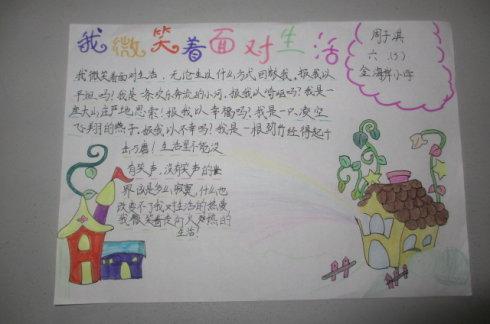 我微笑着面对生活
周子淇
六.(5)
金海岸小学
我微笑着面对生活,无论生以什么方式回敬我。报我以
平坦吗?我是一条欢乐奔流的小河。报我以崎岖吗?我是一
座大山庄严地思索!报我以幸福吗?我是一只凌空
飞翔的燕子。报我以不幸吗?我是一根劲竹经得起千
击万磨!生活里不能没
有笑声,没有笑声的世
界该是多么寂寞。什么也
改变不了我对生活的热爱
我微笑着走向火热的
生活!